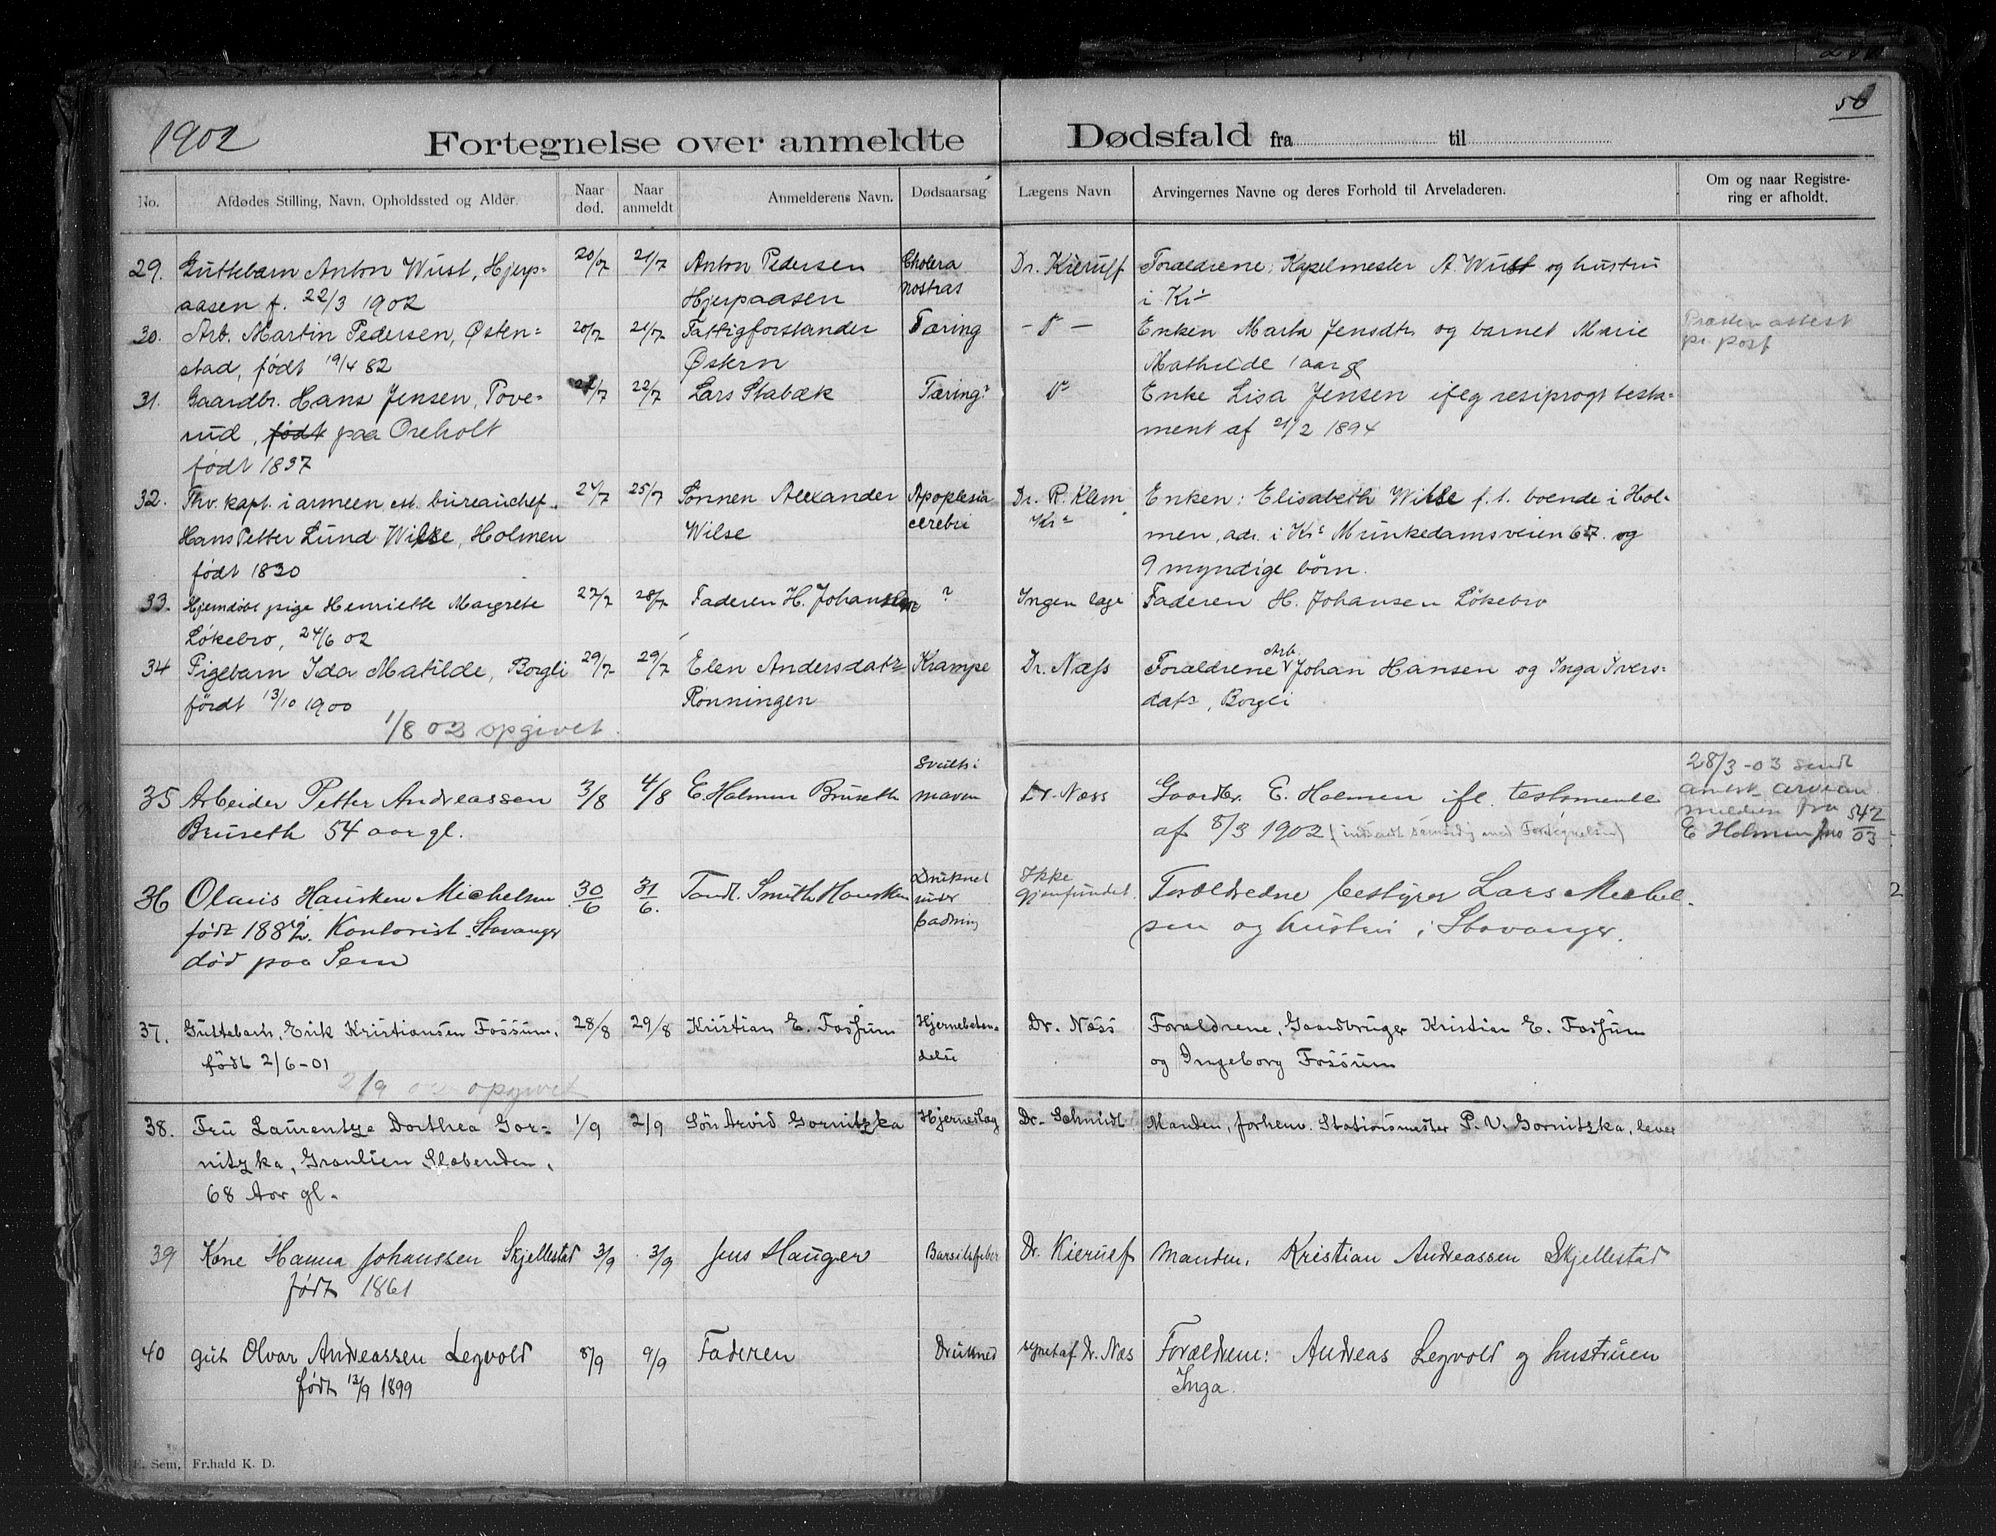 50
1902
Fortegnelse over anmeldte Dødsfald fra til
No. Afdødes Stilling, Navn, Opholdssted og Alder. Naar død. Naar anmeldt Anmelderens Navn. Dødsaarsag Lægens Navn Arvingernes Navne og deres Forhold til Arveladeren. Om og naar Registrering er afholdt.
29. Guttebarn Anton Wust, Hjerp= 20/7 21/7 Anton Pedersen Cholera Dr. Kierulf Forældrene: Kapelmester A. Wust og hustru
aasen f. 22/3 1902 Hjerpaasen nostras i Kr
30. Arb. Martin Pedersen, Østen= 20/7 21/7 Fattigforstander Tæring – D – Enken Marta Jensdtr og barnet Marie Prestenattest
stad, født 19/4 82 Østern Mathilde 1 aar gl pr. post
31. Gaardbr. Hans Jensen, Tove= 21/7 22/7 Lars Stabæk Tæring? Do Enke Lisa Jensen ifølg resiprogt testa=
rud, født paa Oreholt ment af 21/2 1894
født 1837
32. Thv. kapt. i armeen, est. bureauchef 24/7 25/7 Sønnen Alexander Apoplesia Dr. R. Klem Enken: Elisabeth Wilse f. t. boende i Hol=
Hans Petter Lund Wilse, Holmen Wilse cerebri Kra men, adr. i Kra Munkedamsveien 67. og
født 1830 9 myndige børn.
33. Hjemdøbt pige Henriette Margrete 27/7 28/7 Faderen H. Johansen ? Ingen læge Faderen H. Johansen Løkebro
Løkebro, 24/6 02
34 Pigebarn Ida Matilde, Borgli 29/7 29/7 Elen Andersdatr Krampe Dr. Næss Forældrene Arb. Johan Hansen og Inga Ivers=
født 13/10 1900 Rønningen datr, Borgli
1/8 02 opgivet.
35 Arbeider Petter Andreassen 3/8 4/8 E. Holmen Bruseth Svulst i maven Dr. Næss Gaardbr. E. Holmen ifl. testamente 28/3-03 sendt
Bruseth 54 aar gl. af 8/3 1902 (indsendt samtidig med Fortegnelsen) E Holmen jno 542/03
36 Olaus Hausken Michelsen 30/6 31/6. Tandl. Smith Housken Druknet under badning Ikke gjenfundet. Forældredne bestyrer Lars Michel=
født 1882. Kontorist Stavanger sen og hustru i Stavanger.
død paa Sem
37. Guttebarn, Erik Kristiansen Fossum. 28/8 29/8 Kristian E. Fossum Hjernebeten= Dr. Næss Forældrene, Gaardbruger Kristian E. Fossum
født 2/6-01 delse og Ingeborg Fossum
2/9 02 opgivet
38. Fru Laurentze Dorthea Gor= 1/9 2/9 Søn Arvid Gornitzka Hjerneslag Dr. Schmidt Manden, forhenv. Stationsmester P. V. Gornitzka, lever
nitzka, Granlien Slabenden.
68 Aar gl.
39 Kone Hanna Johanssen Skjellestad 3/9 3/9 Jens Hauger Barselsfeber Dr. Kierulf Manden, Kristian Andreassen Skjellestad
født 1861
40 gut Olvar Andreassen Legvold 8/9 9/9 Faderen Druknet synet af Dr. Næs Forældrene: Andreas Legvold og hustruen
født 12/9 1899 Inga.
E. Sem, Fr.hald K. D.